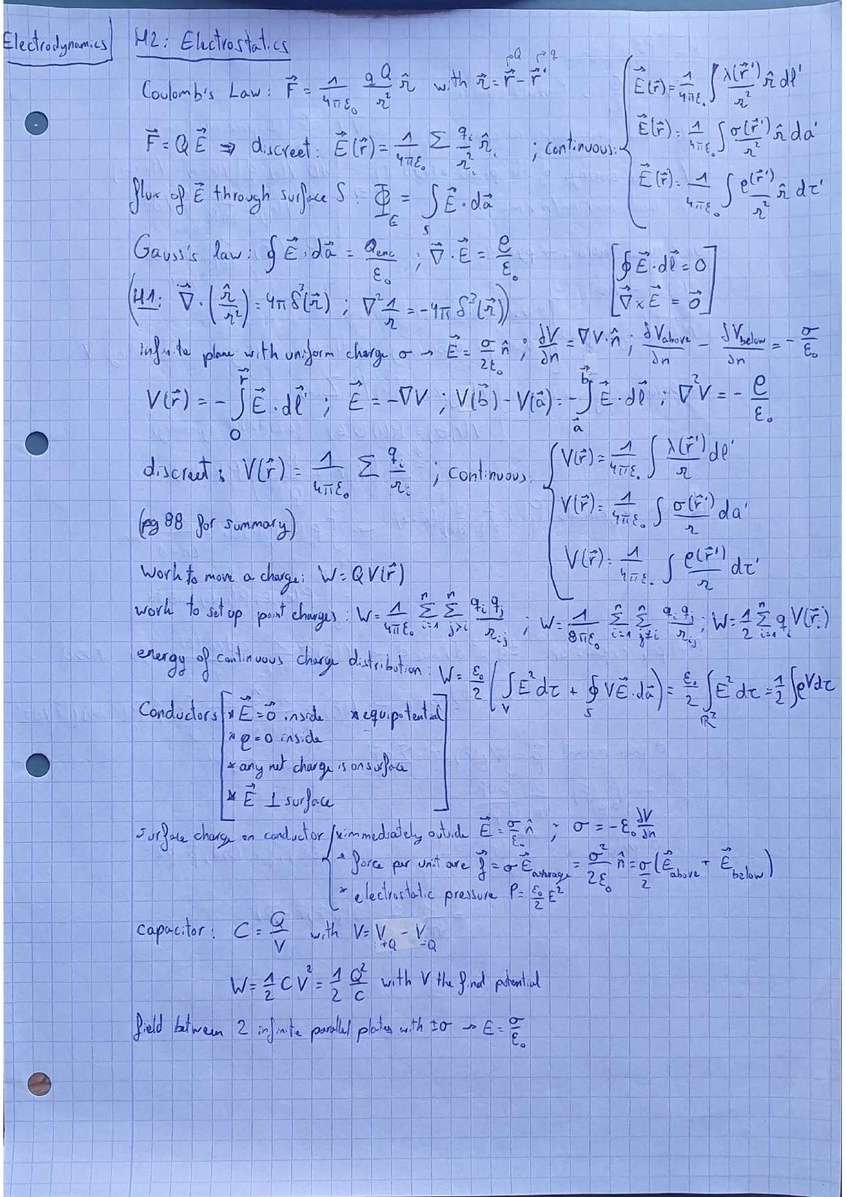 Electrodynamics
H2: Electrostatics
Coulomb's Law: F⃗ = 1/(4πε₀) qQ/𝓇² 𝓇̂ with 𝓇⃗ = r⃗ - r⃗' (r⃗: Q, r⃗': q)
F⃗ = QE⃗ ⇒ discreet: E⃗(r⃗) = 1/(4πε₀) Σ qᵢ/𝓇ᵢ² 𝓇̂ᵢ ; continuous:
E⃗(r⃗) = 1/(4πε₀) ∫ λ(r⃗')/𝓇² 𝓇̂ dl'
E⃗(r⃗) = 1/(4πε₀) ∫ σ(r⃗')/𝓇² 𝓇̂ da'
E⃗(r⃗) = 1/(4πε₀) ∫ ρ(r⃗')/𝓇² 𝓇̂ dτ'
flux of E⃗ through surface S: Φ_E = ∫_S E⃗·da⃗
Gauss's law: ∮E⃗·da⃗ = Q_enc/ε₀ ; ∇⃗·E⃗ = ρ/ε₀
[∮E⃗·dl⃗ = 0
∇⃗×E⃗ = 0⃗]
(H1: ∇⃗·(𝓇̂/𝓇²) = 4πδ³(𝓇⃗) ; ∇² 1/𝓇 = -4πδ³(𝓇⃗))
infinite plane with uniform charge σ → E⃗ = σ/(2ε₀) n̂ ; ∂V/∂n = ∇V·n̂ ; ∂V_above/∂n - ∂V_below/∂n = -σ/ε₀
V(r⃗) = -∫_O^r⃗ E⃗·dl⃗' ; E⃗ = -∇V ; V(b⃗) - V(a⃗) = -∫_a⃗^b⃗ E⃗·dl⃗ ; ∇²V = -ρ/ε₀
discreet: V(r⃗) = 1/(4πε₀) Σ qᵢ/𝓇ᵢ ; continuous:
V(r⃗) = 1/(4πε₀) ∫ λ(r⃗')/𝓇 dl'
V(r⃗) = 1/(4πε₀) ∫ σ(r⃗')/𝓇 da'
V(r⃗) = 1/(4πε₀) ∫ ρ(r⃗')/𝓇 dτ'
(pg 88 for summary)
Work to move a charge: W = QV(r⃗)
work to set up point charges: W = 1/(4πε₀) Σ_{i=1}^n Σ_{j>i}^n qᵢqⱼ/𝓇ᵢⱼ ; W = 1/(8πε₀) Σ_{i=1}^n Σ_{j≠i}^n qᵢqⱼ/𝓇ᵢⱼ ; W = 1/2 Σ_{i=1}^n qᵢV(r⃗ᵢ)
energy of continuous charge distribution: W = ε₀/2 (∫_V E²dτ + ∮_S VE⃗·da⃗) = ε₀/2 ∫_ℝ² E²dτ = 1/2 ∫ρVdτ
Conductors [* E⃗ = 0⃗ inside * equipotential
* ρ = 0 inside
* any net charge is on surface
* E⃗ ⊥ surface]
Surface charge on conductor { * immediately outside E⃗ = σ/ε₀ n̂ ; σ = -ε₀ ∂V/∂n
* force per unit are f⃗ = σE⃗_average = σ²/(2ε₀) n̂ = σ/2 (E⃗_above + E⃗_below)
* electrostatic pressure P = ε₀/2 E²
capacitor: C = Q/V with V = V_+Q - V_-Q
W = 1/2 CV² = 1/2 Q²/C with V the final potential
field between 2 infinite parallel plates with ±σ → E = σ/ε₀